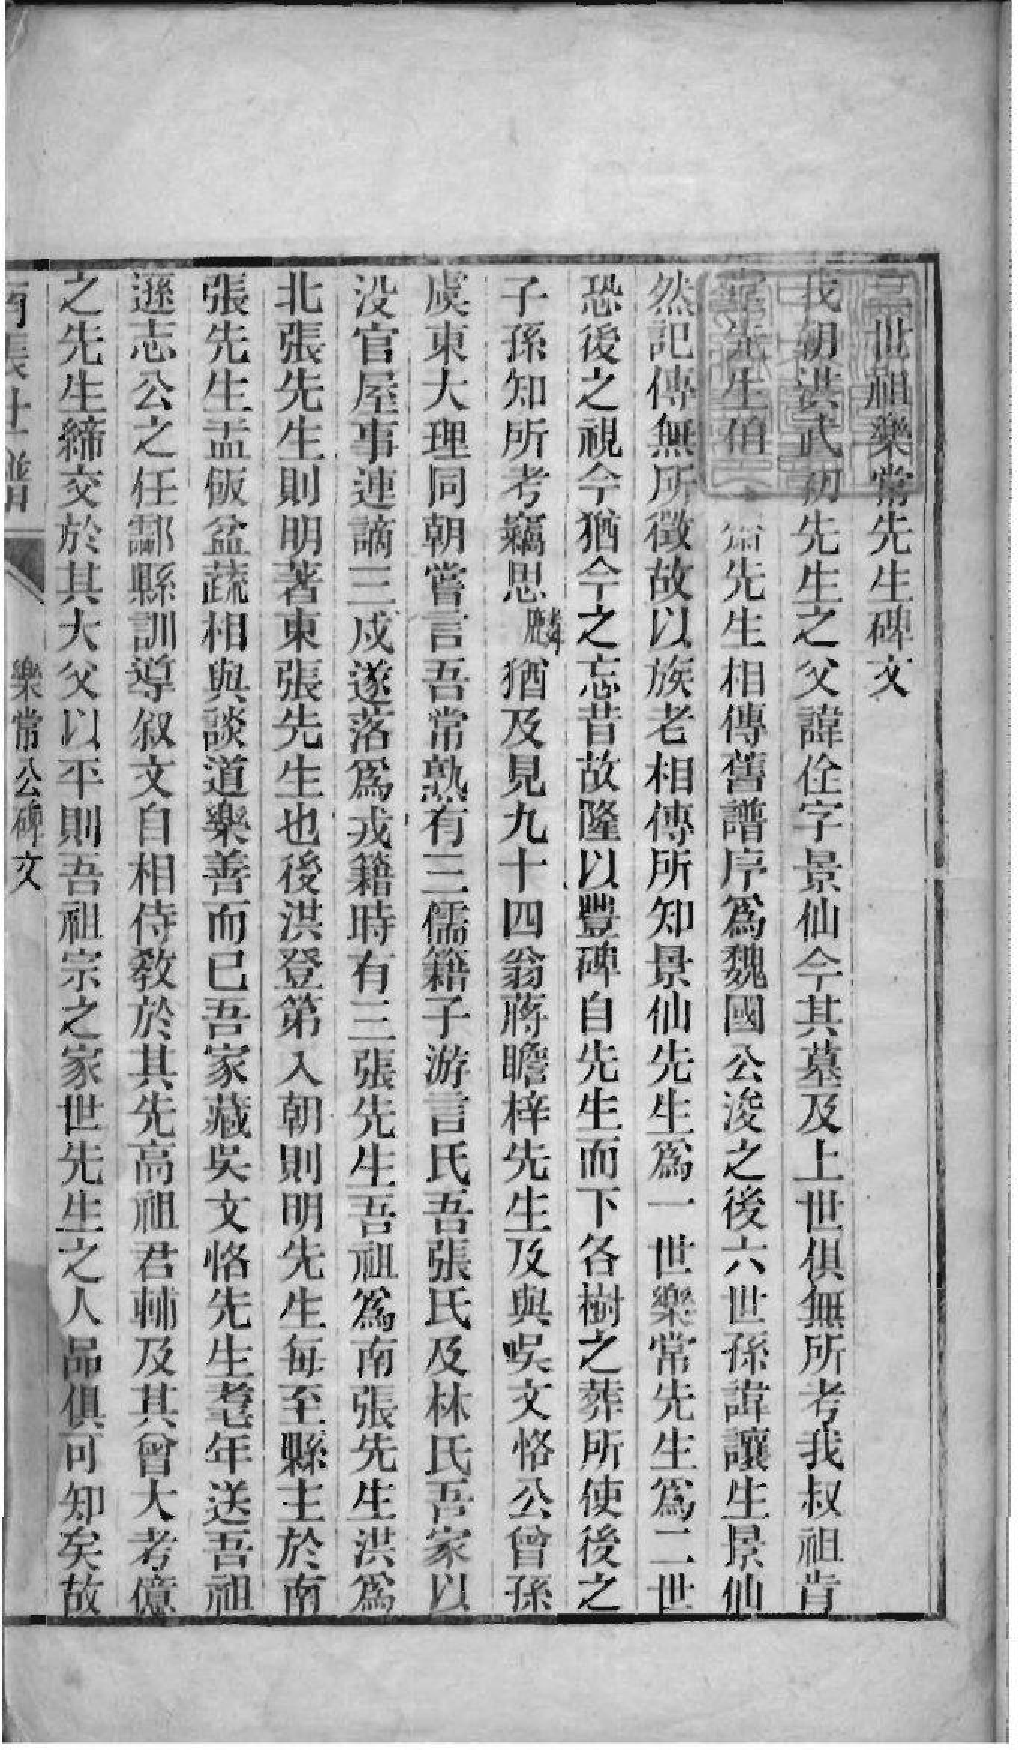 二世祖樂常先生碑文
我朝洪武初先生之父諱佺字景仙今其墓及上世俱無所考我叔祖肯
堂先生伯 齋先生相傳舊譜序爲魏國公浚之後六世孫諱讓生景仙
然記傳無所徵故以族老相傳所知景仙先生爲一世樂常先生爲二世
恐後之視今猶今之忘昔故隆以豐碑自先生而下各樹之葬所使後之
子孫知所考竊思麟猶及見九十四翁蔣瞻梓先生及與吳文恪公曾孫
虞東大理同朝嘗言吾常熟有三儒籍子游言氏吾張氏及林氏吾家以
没官屋事連謫三戍遂落爲戎籍時有三張先生吾祖爲南張先生洪爲
北張先生則明著東張先生也後洪登第入朝則明先生每至縣主於南
張先生盂飯盆蔬相與談道樂善而已吾家藏吳文恪先生耄年送吾祖
遜志公之任酃縣訓導叙文自相侍教於其先高祖君輔及其曾大考億
之先生締交於其大父以平則吾祖宗之家世先生之人品俱可知矣故
南張世譜
樂常公碑文